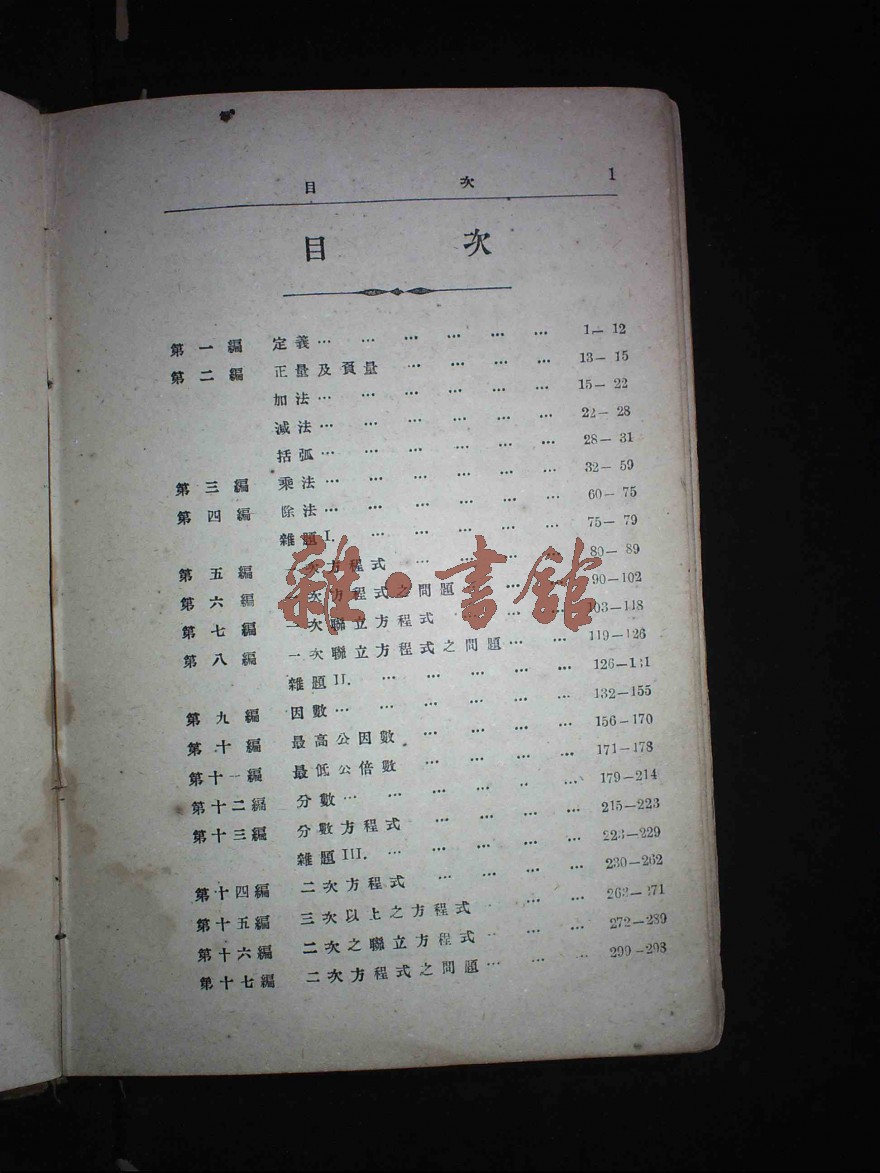 目 次 1
目 次
第一編 定義… … … … … … 1— 12
第二編 正量及負量 … … … … 13— 15
加法… … … … … … 15— 22
減法… … … … … … 22— 28
括弧… … … … … … 28— 31
第三編 乘法… … … … … … 32— 59
第四編 除法… … … … … … 60— 75
雜題I. … … … … … 75— 79
第五編 一次方程式 … … … … 80— 89
第六編 一次方程式之問題… … … 90—102
第七編 一次聯立方程式 … … … 103—118
第八編 一次聯立方程式之問題… … 119—126
雜題II. … … … … … 126—131
第九編 因數… … … … … … 132—155
第十編 最高公因數 … … … … 156—170
第十一編 最低公倍數 … … … … 171—178
第十二編 分數… … … … … … 179—214
第十三編 分數方程式 … … … … 215—223
雜題III. … … … … … 223—229
第十四編 二次方程式 … … … … 230—262
第十五編 三次以上之方程式 … … … 263—271
第十六編 二次之聯立方程式 … … … 272—289
第十七編 二次方程式之問題… … … 299—298
雜·書館